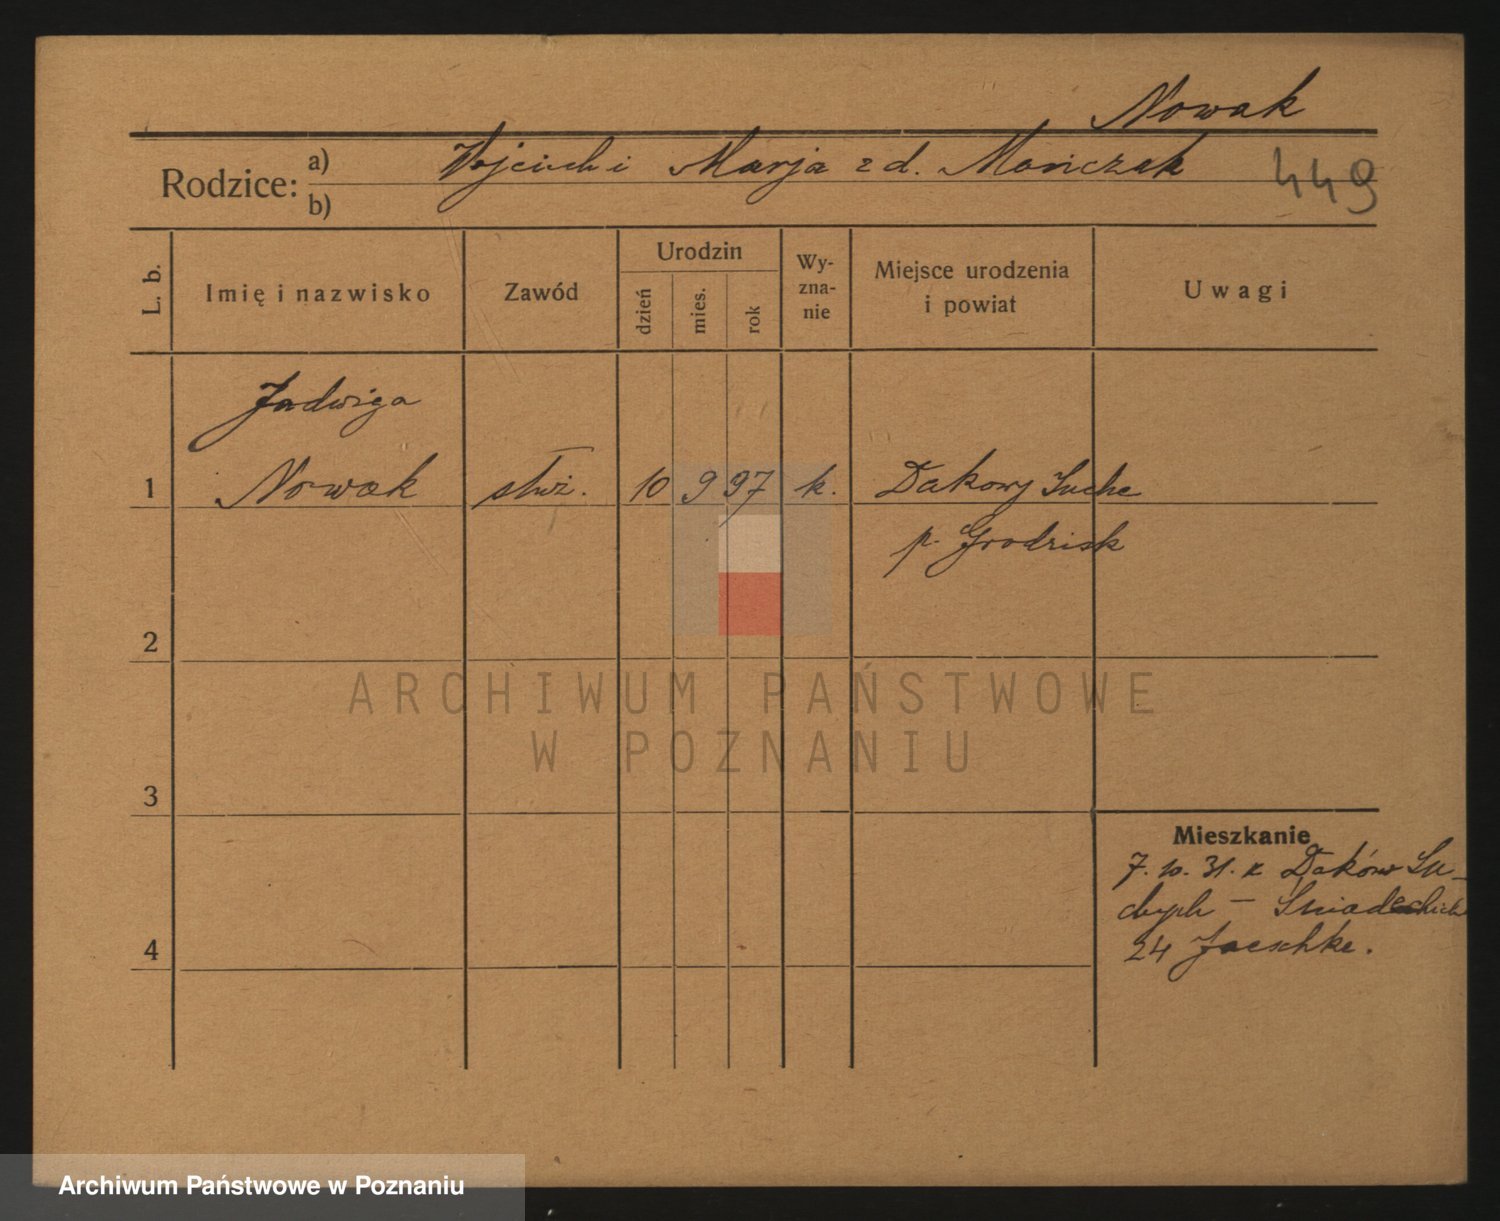 Nowak
Rodzice: a) Wojciech i Marja z d. Mańczak 449
b)
L. b. Imię i nazwisko Zawód Urodzin dzień mies. rok Wy-zna-nie Miejsce urodzenia i powiat Uwagi
Jadwiga
1 Nowak służ. 10 9 97 k. Dakowy Suche
p. Grodzisk
2
ARCHIWUM PAŃSTWOWE
W POZNANIU
3
Mieszkanie
7. 10. 31. z Daków Su-
chych -
4 24 Jaeschke.
Archiwum Państwowe w Poznaniu